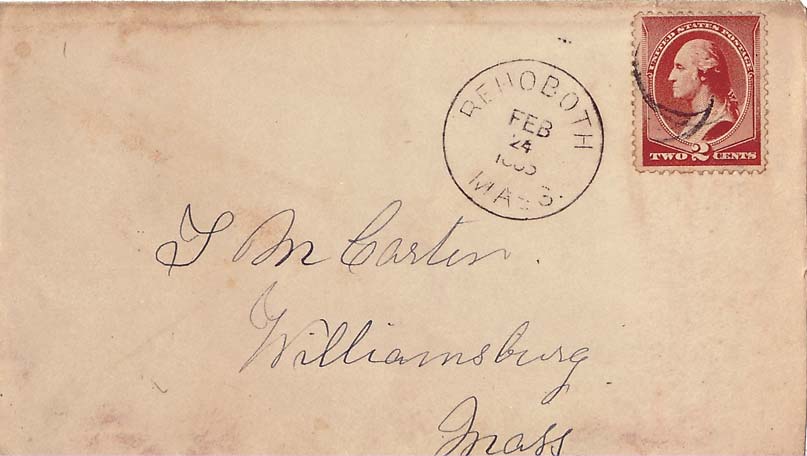 UNITED STATES POSTAGE
TWO 2 CENTS
REHOBOTH
FEB
24
MASS.
Carter.
Williamsburg
Mass